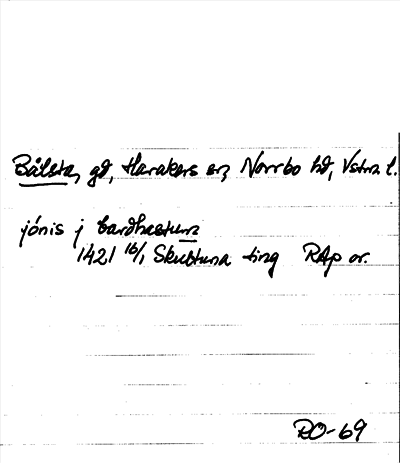 Bålsta, gd, Harakers sn, Norrbo hd, Vstm. l.
jónis j bardhastum
1421 16/1 Skultuna ting RAp or.
RO-69